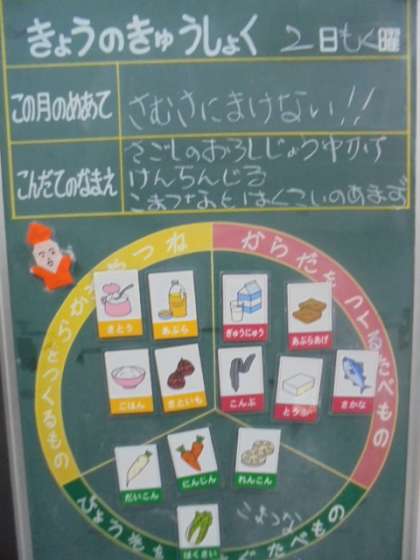 きょうのきゅうしょく 2日もく曜
この月のめあて
さむさにまけない!!
こんだてのなまえ
さごしのおろしじょうゆかけ
けんちんじる
こまつなとはくさいのあまず
からだをつくるたべもの
さとう
あぶら
ぎゅうにゅう
あぶらあげ
ごはん
さといも
こんぶ
とうふ
さかな
だいこん
にんじん
れんこん
はくさい
こまつな